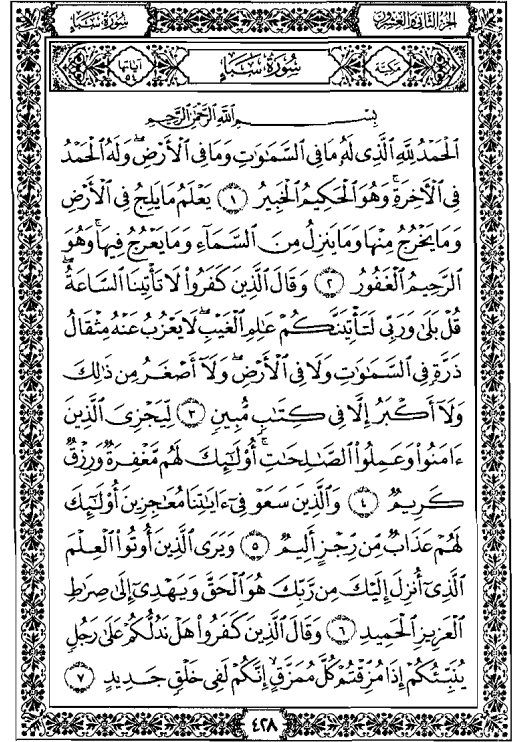 سُورَةُ سَبَإٍ
الجزء الثاني والعشرون
مكية
سُورَةُ سَبَإٍ
آياتها ٥٤
بِسْمِ اللَّهِ الرَّحْمَٰنِ الرَّحِيمِ
الْحَمْدُ لِلَّهِ الَّذِي لَهُ مَا فِي السَّمَٰوَٰتِ وَمَا فِي الْأَرْضِ ۖ وَلَهُ الْحَمْدُ
فِي الْأَخِرَةِ ۚ وَهُوَ الْحَكِيمُ الْخَبِيرُ ١ يَعْلَمُ مَا يَلِجُ فِي الْأَرْضِ
وَمَا يَخْرُجُ مِنْهَا وَمَا يَنزِلُ مِنَ السَّمَآءِ وَمَا يَعْرُجُ فِيهَا ۚ وَهُوَ
الرَّحِيمُ الْغَفُورُ ٢ وَقَالَ الَّذِينَ كَفَرُوا۟ لَا تَأْتِينَا السَّاعَةُ ۖ
قُلْ بَلَىٰ وَرَبِّي لَتَأْتِيَنَّكُمْ عَٰلِمِ الْغَيْبِ ۖ لَا يَعْزُبُ عَنْهُ مِثْقَالُ
ذَرَّةٍ فِي السَّمَٰوَٰتِ وَلَا فِي الْأَرْضِ وَلَآ أَصْغَرُ مِن ذَٰلِكَ
وَلَآ أَكْبَرُ إِلَّا فِي كِتَٰبٍ مُّبِينٍ ٣ لِّيَجْزِيَ الَّذِينَ
ءَامَنُوا۟ وَعَمِلُوا۟ الصَّٰلِحَٰتِ ۚ أُو۟لَٰٓئِكَ لَهُم مَّغْفِرَةٌ وَرِزْقٌ
كَرِيمٌ ٤ وَالَّذِينَ سَعَوْ فِيٓ ءَايَٰتِنَا مُعَٰجِزِينَ أُو۟لَٰٓئِكَ
لَهُمْ عَذَابٌ مِّن رِّجْزٍ أَلِيمٌ ٥ وَيَرَى الَّذِينَ أُوتُوا۟ الْعِلْمَ
الَّذِيٓ أُنزِلَ إِلَيْكَ مِن رَّبِّكَ هُوَ الْحَقَّ وَيَهْدِيٓ إِلَىٰ صِرَٰطِ
الْعَزِيزِ الْحَمِيدِ ٦ وَقَالَ الَّذِينَ كَفَرُوا۟ هَلْ نَدُلُّكُمْ عَلَىٰ رَجُلٍ
يُنَبِّئُكُمْ إِذَا مُزِّقْتُمْ كُلَّ مُمَزَّقٍ إِنَّكُمْ لَفِي خَلْقٍ جَدِيدٍ ٧
٤٢٨